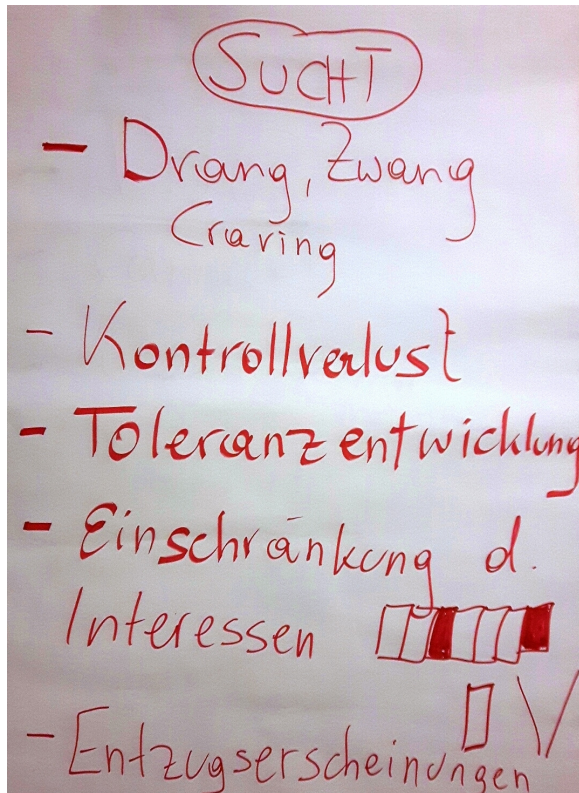 SUCHT
- Drang, Zwang
Craving
- Kontrollverlust
- Toleranzentwicklung
- Einschränkung d.
Interessen
- Entzugserscheinungen